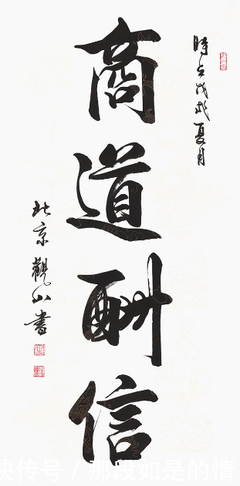 時在戊戌夏月
商道酬信
北京觀山書
快传号 / 那段如是的情